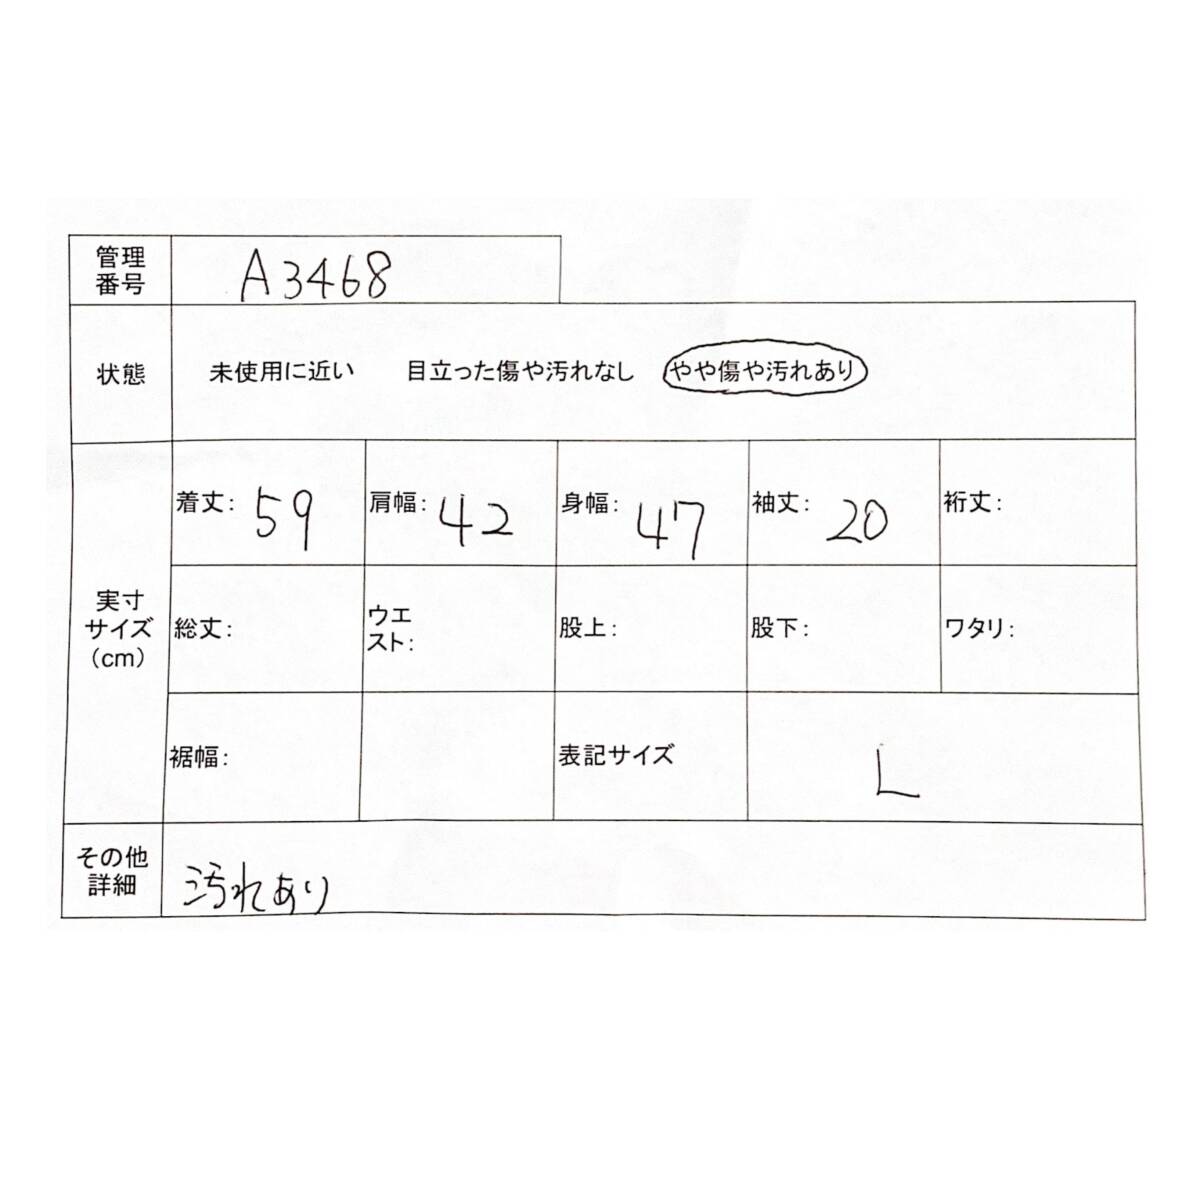 管理
番号
A3468
状態
未使用に近い 目立った傷や汚れなし やや傷や汚れあり
実寸
サイズ
(cm)
着丈: 59
肩幅: 42
身幅: 47
袖丈: 20
裄丈:
総丈:
ウエ
スト:
股上:
股下:
ワタリ:
裾幅:
表記サイズ
L
その他
詳細
汚れあり